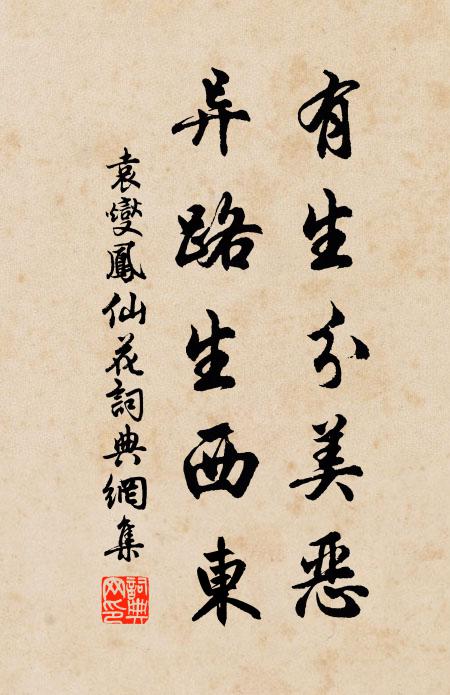 有生分美惡
异路生西東
袁燮鳳仙花詞典網集
詞典
網印